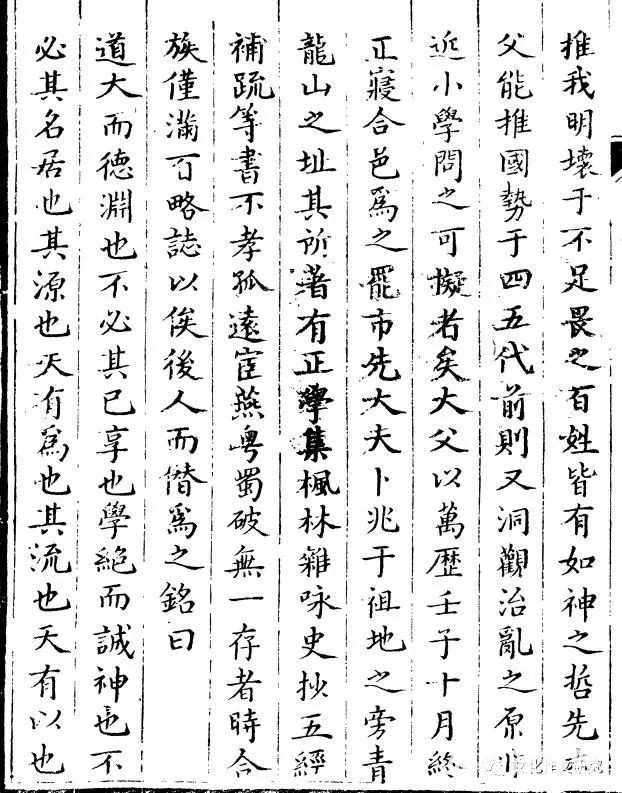 推我明壞于不足畏之百姓皆有如神之哲先大
父能推國勢于四五代前則又洞觀治亂之原
近小學問之可擬者矣大父以萬歷壬子十月終
正寢合邑為之罷市先大夫卜兆于祖地之旁青
龍山之址其所著有正學集楓林雜咏史抄五經
補疏等書不孝孤遠宦燕粵蜀破無一存者時合
族僅滿百略誌以俟後人而僣為之銘曰
道大而德淵也不必其已享也學絕而誠神也不
必其名居也其源也天有為也其流也天有以也